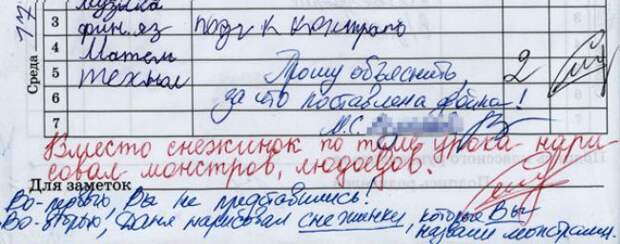 17
Среда
музыка
3 фин. яз подг к контроль
4 Матем
5 технол Прошу объяснить, 2
6 за что поставлена двойка!
7 М.С.
Вместо снежинок по теме урока нари-
совал монстров, людоедов.
Для заметок
Во-первых, Вы не представились!
Во-вторых, Даня нарисовал снежинки, которые Вы
назвали монстрами.